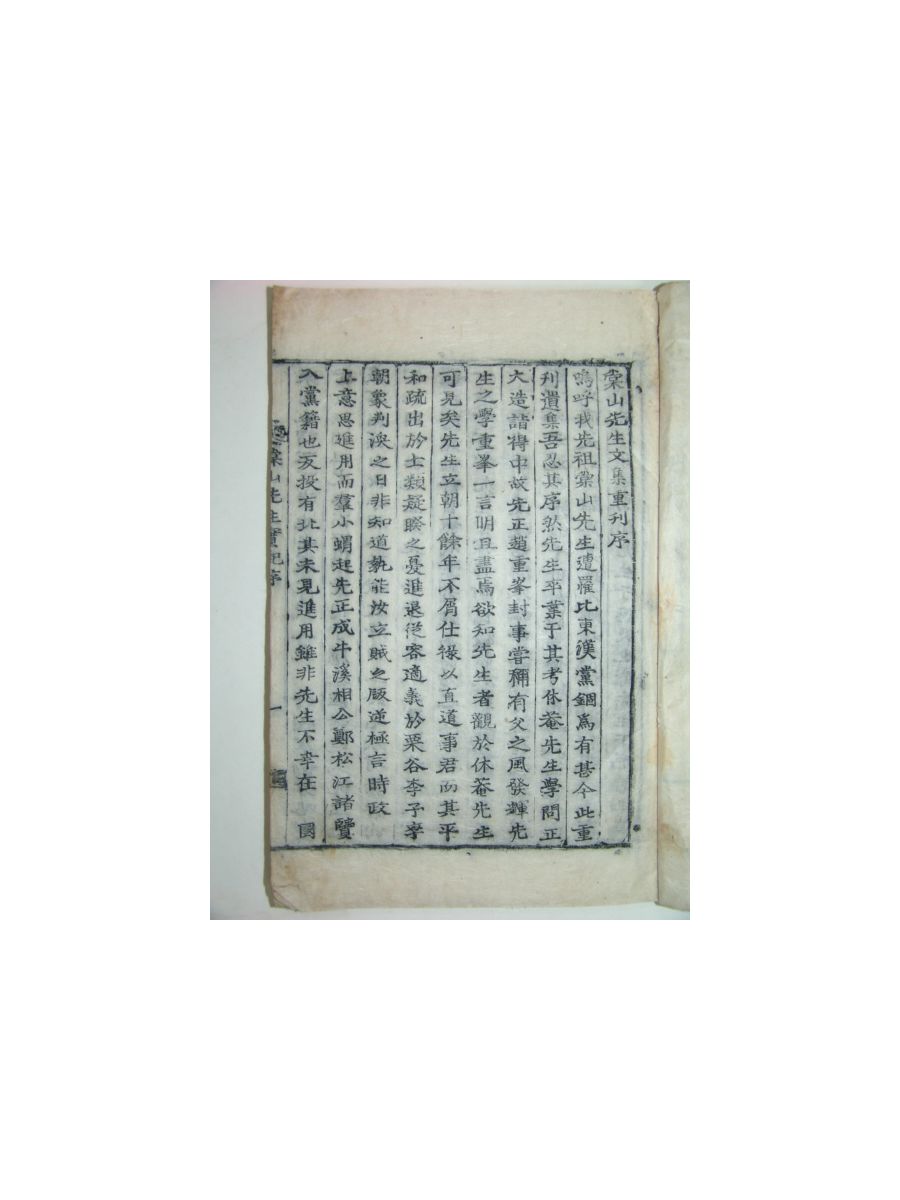 棠山先生文集重刊序
嗚呼我先祖棠山先生遭羅比東漢黨錮爲有甚今此重
刊遺集吾忍其序然先生卒業于其考休菴先生學問正
大造詣得中故先正趙重峯封事嘗稱有父之風發輝先
生之學重峯一言明且盡焉欲知先生者觀於休菴先生
可見矣先生立朝十餘年不屑仕祿以直道事君而其平
和疏出於士類疑睽之憂進退從容適義於栗谷李子宰
朝象判渙之日非知道孰能汝立賊之叛逆極言時政
上意思進用而羣小蝟起先正成牛溪相公鄭松江諸賢
入黨籍也友投有北其未見進用雖非先生不幸在 國
棠山先生實記序
一